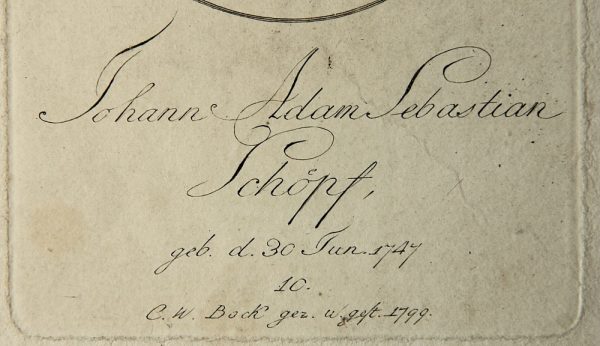 Johann Adam Sebastian
Schöpf,
geb. d. 30 Jun. 1747
10.
C. W. Bock gez. u. gest. 1799.